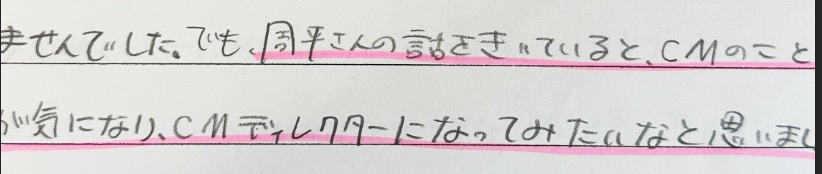 ませんでした。でも、周平さんの話をきいていると、CMのこと
が気になり、CMディレクターになってみたいなと思いまし